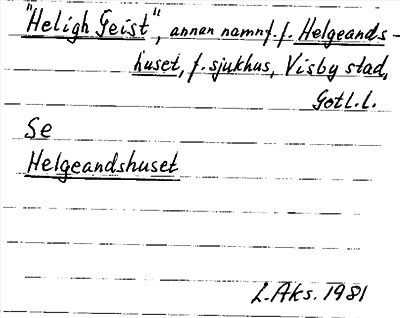 "Heligh Geist", annan namnf. f. Helgeands-
huset, f. sjukhus, Visby stad,
Gotl.l.
Se
Helgeandshuset
L. Aks. 1981